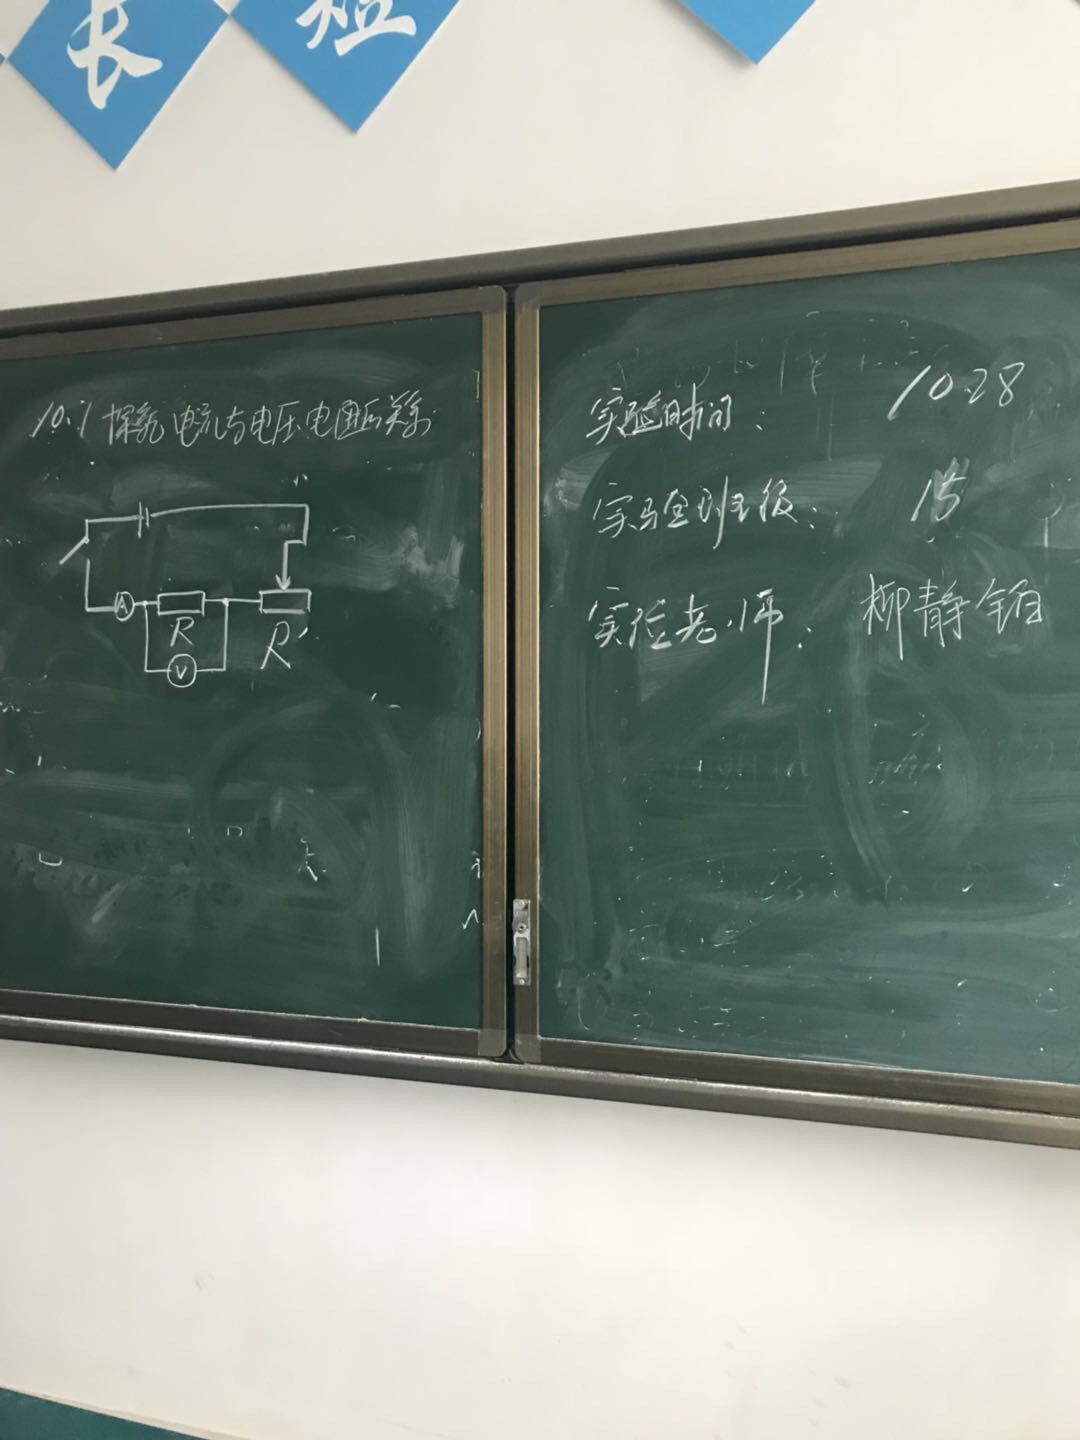 长 短
10.1 探究电流与电压电阻的关系
A
R
R′
V
实验时间: 10.28
实验班级: 15
实验老师: 柳静